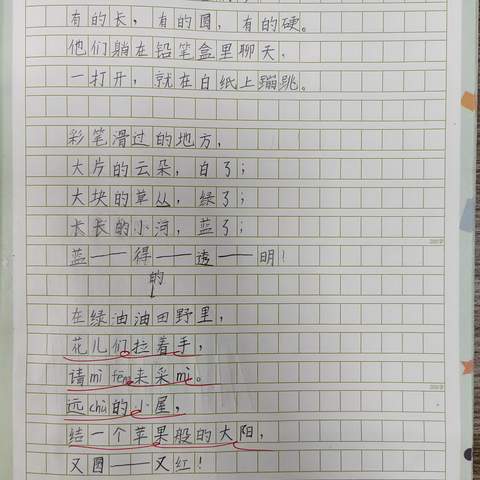 有的长，有的圆，有的硬。
他们躺在铅笔盒里聊天，
一打开，就在白纸上蹦跳。
彩笔滑过的地方，
大片的云朵，白了；
大块的草丛，绿了；
长长的小河，蓝了；
蓝——得——透——明！
的
在绿油油田野里，
花儿们拉着手，
请mì fēng来采mì。
远chù的小屋，
结一个苹果般的大阳，
又圆——又红！